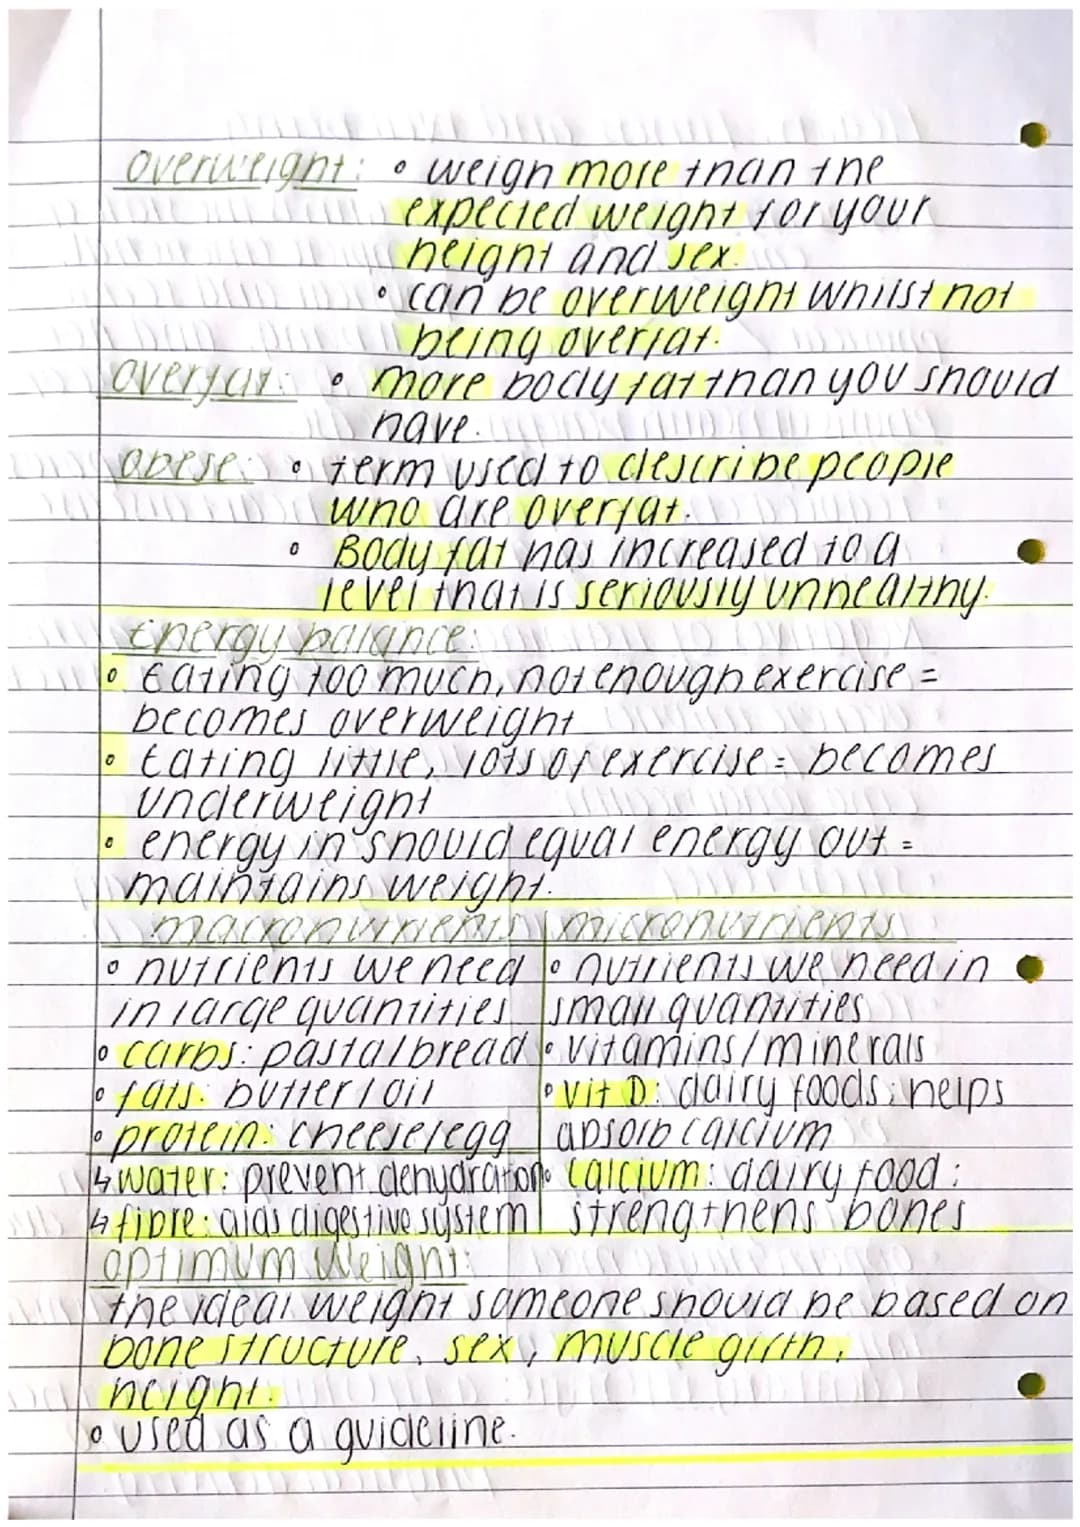 overweight: • weigh more than the
expected weight for your
height and sex.
• can be overweight whilst not
being overfat.
overfat: • more body fat than you should
have.
obese: • term used to describe people
who are overfat.
• Body fat has increased to a
level that is seriously unhealthy.
Energy balance:
• Eating too much, not enough exercise =
becomes overweight
• Eating little, lots of exercise = becomes
underweight
• energy in should equal energy out =
maintains weight.
macronutrients | micronutrients
• nutrients we need • nutrients we need in
in large quantities small quantities
• carbs: pasta/bread • vitamins/minerals
• fats: butter/oil • vit D: dairy foods: helps
• protein: cheese/egg absorb calcium
↳ water: prevent dehydration • calcium: dairy food:
↳ fibre: aids digestive system strengthens bones
optimum weight:
the ideal weight someone should be based on
bone structure, sex, muscle girth,
height.
• used as a guideline.